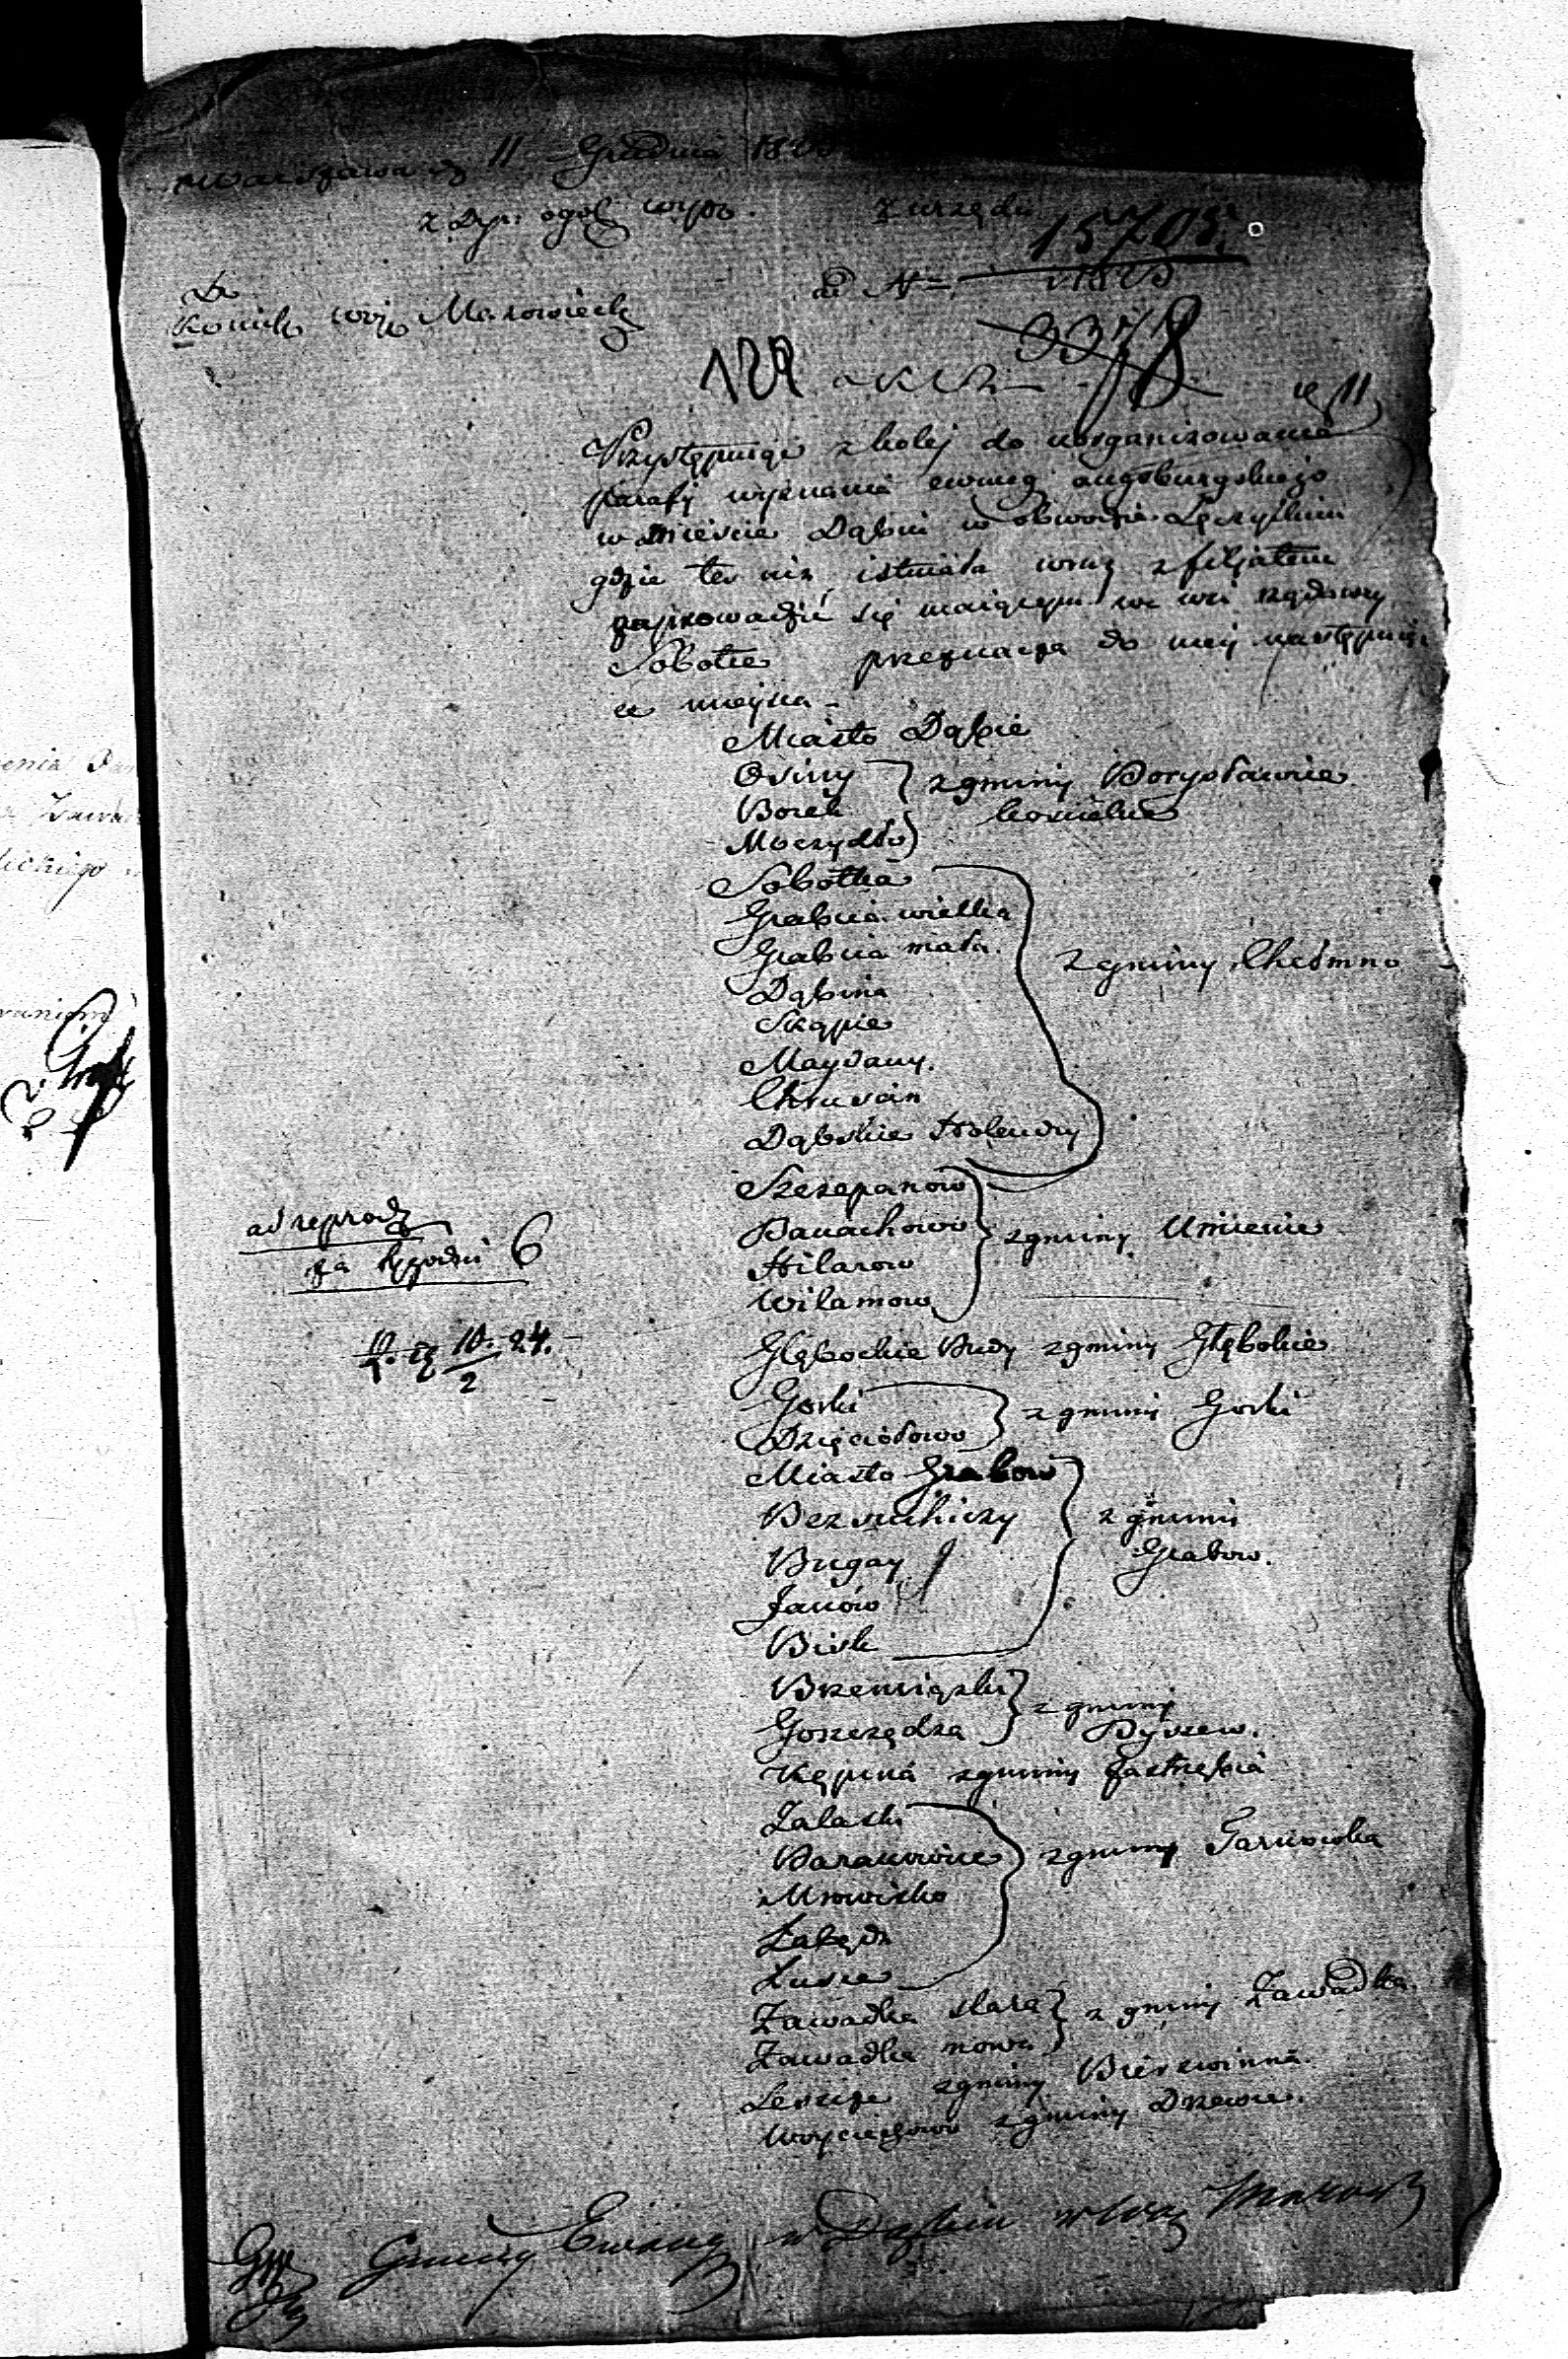 Warszawa d. 11 Grudnia 18
z Dyr: ogól: wyzn. z urzędu
15705.
ad N
Do
Kommis woje Mazowieck
3378
129
Przystępuiąc z kolej do uorganizowania
parafij wyznania ewang augsburgskiego
w mieście Dąbiu w obwodzie Łęczyckim
gdzie ta iuż istniała wraz z filjałem
zaprowadzić się maiącym we wsi rządowey
Sobótce przeznacza do niey następuią
ce mieysca
Miasto Dąbie
Osiny
Borek
Moczydło
z gminy Borysławice
kościelne
Sobótka
Grabina wielka
Grabina mała.
Dąbina
Skąpie
Maydany.
Chruścin
Dąbskie Holendry
z gminy Chełmno
Szczepanow
Banachowo
Hilarow
Wilamow
z gminy Umienie
ad reprod
za tygodni 6
10. 24.
2
Głębockie Budy z gminy Głębokie
Gorki
Dzięciołowo
z gminy Gorki
Miasto Grabow
Besiekiezy
Bugay
Janów
Biesk
z gminy
Grabow.
Brzemiązki
Goszczędza
z gminy
Byszew.
Kępina z gminy Jastrzębia
Zalaski
Baranowice
Mrowiczko
Łabędz
Łusce
z gminy Tarnowka
Zawadka stara
Zawadka nowa
z gminy Zawadka.
Leszcze z gminy Bierzwinna.
Woyciechowo z gminy Drzewce.
Gminy Ewang w Dąbiu w Woj Mazow